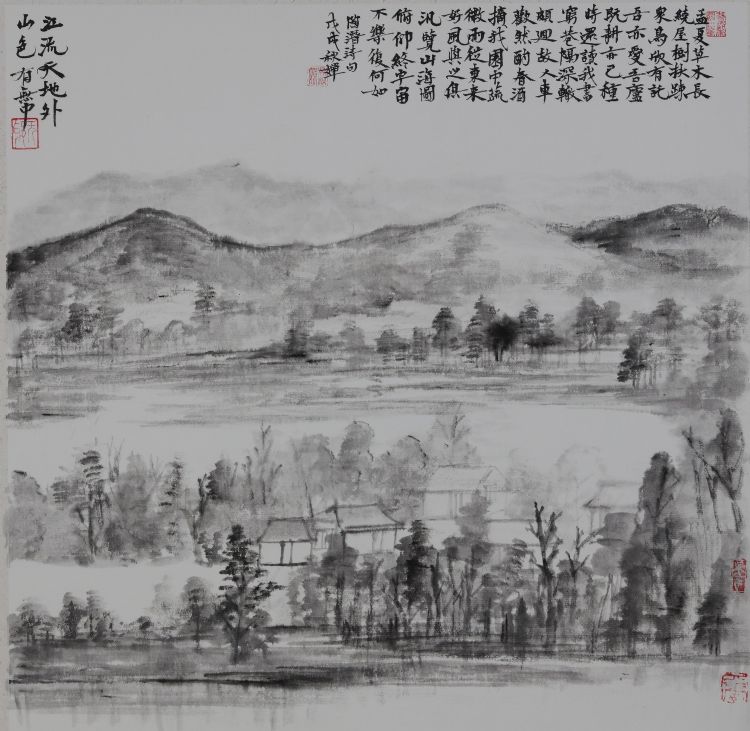 孟夏草木長
繞屋樹扶疎
衆鳥欣有託
吾亦愛吾廬
既耕亦已種
時還讀我書
窮巷隔深轍
頗迴故人車
歡然酌春酒
摘我園中蔬
微雨從東來
好風與之俱
汎覽山海圖
俯仰終宇宙
不樂復何如
陶潛詩句
戊戌秋輝
江流天地外
山色有無中